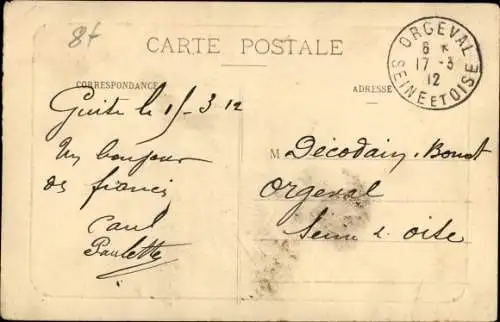 8f
CARTE POSTALE
CORRESPONDANCE
ADRESSE
ORGEVAL
6 *
17 - 3
12
SEINE ET OISE
le 15 - 3. 12
Un bonjour
des
Paul
Paulette
M Décodain. Bonat
Orgeval
Seine & oise